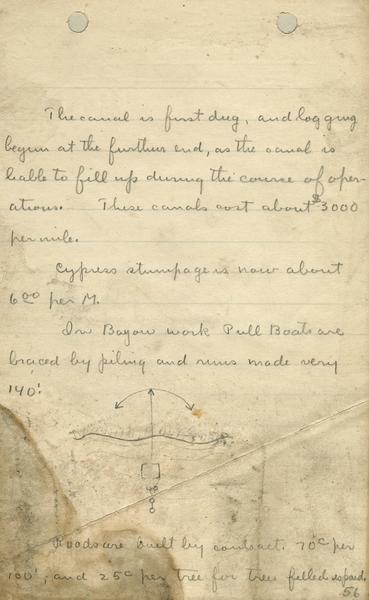 The canal is first dug, and logging
begun at the further end, as the canal is
liable to fill up during the course of oper-
ations. These canals cost about $3000
per mile.
Cypress stumpage is now about
6⁰⁰ per M.
In Bayou work Pull Boats are
braced by piling and runs made very
140'.
Roads are built by contract. 70¢ per
100', and 25¢ per tree for trees filled
56